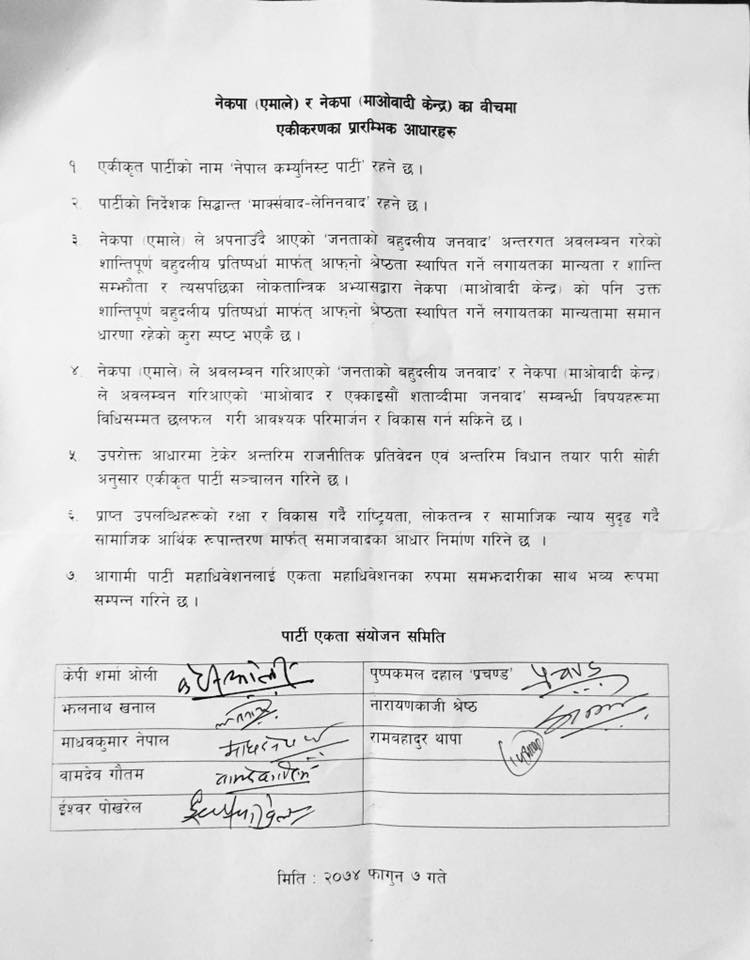 नेकपा (एमाले) र नेकपा (माओवादी केन्द्र) का वीचमा
एकीकरणका प्रारम्भिक आधारहरु
१ एकीकृत पार्टीको नाम 'नेपाल कम्युनिस्ट पार्टी' रहने छ ।
२. पार्टीको निर्देशक सिद्धान्त 'मार्क्सवाद-लेनिनवाद' रहने छ ।
३. नेकपा (एमाले) ले अपनाउँदै आएको 'जनताको बहुदलीय जनवाद' अन्तरगत अवलम्बन गरेको
शान्तिपूर्ण बहुदलीय प्रतिष्पर्धा मार्फत् आफ्नो श्रेष्ठता स्थापित गर्ने लगायतका मान्यता र शान्ति
सम्झौता र त्यसपछिका लोकतान्त्रिक अभ्यासद्वारा नेकपा (माओवादी केन्द्र) को पनि उक्त
शान्तिपूर्ण बहुदलीय प्रतिष्पर्धा मार्फत् आफ्नो श्रेष्ठता स्थापित गर्ने लगायतका मान्यतामा समान
धारणा रहेको कुरा स्पष्ट भएकै छ ।
४. नेकपा (एमाले) ले अवलम्बन गरिआएको 'जनताको बहुदलीय जनवाद' र नेकपा (माओवादी केन्द्र)
ले अवलम्बन गरिआएको 'माओवाद र एक्काइसौं शताव्दीमा जनवाद' सम्बन्धी विषयहरूमा
विधिसम्मत छलफल गरी आवश्यक परिमार्जन र विकास गर्न सकिने छ ।
५. उपरोक्त आधारमा टेकेर अन्तरिम राजनीतिक प्रतिवेदन एवं अन्तरिम विधान तयार पारी सोही
अनुसार एकीकृत पार्टी सञ्चालन गरिने छ ।
६. प्राप्त उपलब्धिहरूको रक्षा र विकास गर्दै राष्ट्रियता, लोकतन्त्र र सामाजिक न्याय सुदृढ गर्दै
सामाजिक आर्थिक रूपान्तरण मार्फत् समाजवादका आधार निर्माण गरिने छ ।
७. आगामी पार्टी महाधिवेशनलाई एकता महाधिवेशनका रुपमा समझदारीका साथ भव्य रूपमा
सम्पन्न गरिने छ ।
पार्टी एकता संयोजन समिति
केपी शर्मा ओली
पुष्पकमल दहाल 'प्रचण्ड'
झलनाथ खनाल
नारायणकाजी श्रेष्ठ
माधवकुमार नेपाल
रामबहादुर थापा
वामदेव गौतम
ईश्वर पोखरेल
मिति : २०७४ फागुन ७ गते